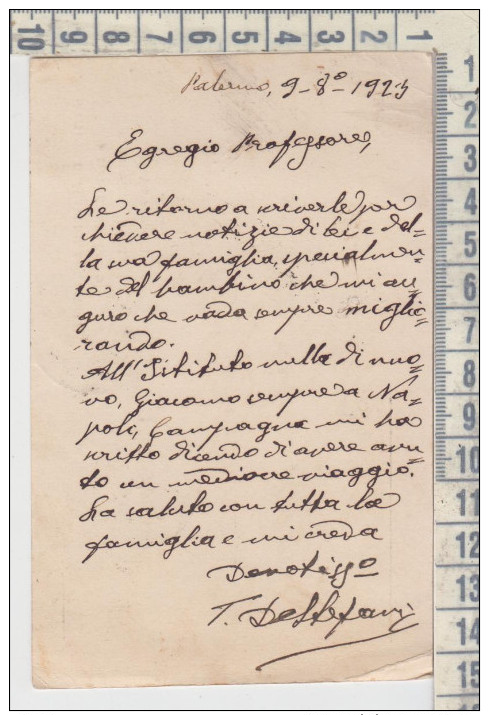 Palermo, 9-8º-1923
Egregio Professore,
Le ritorno a scriverle per
chiedere notizie di lei e del=
la sua famiglia, specialmen=
te del bambino che mi au=
guro che vada sempre miglio=
rando.
All'Istituto nulla di nuo=
vo, Giacomo sempre a Na=
poli, Campagna mi ha
scritto dicendo di avere avu=
to un mediocre viaggio.
La saluto con tutta la
famiglia e mi creda
Devotisso
T. DeStefani
10 9 8 7 6 5 4 3 2 1
1
2
3
4
5
6
7
8
9
10
11
12
13
14
15